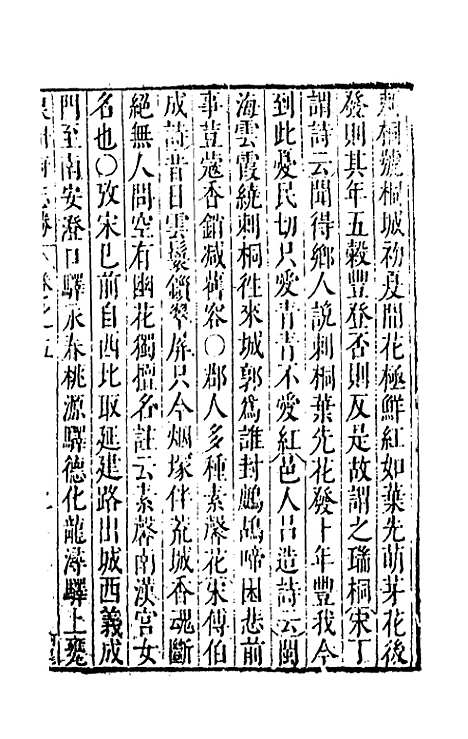 桐號桐城初夏開花極鮮紅如葉先萌芽花後
發則其年五穀豐登否則反是故謂之瑞桐宋丁
謂詩云聞得鄉人說刺桐葉先花發卜年豐我今
到此憂民切只愛青青不愛紅邑人呂造詩云閩
海雲霞繞刺桐徃來城郭爲誰封鷓鴣啼困悲前
事荳蔲香銷减舊容○郡人多種素馨花宋傅伯
成詩昔日雲鬟鎖翠屏只今烟塚伴荒城香魂斷
絕無人問空有幽花獨擅名註云素馨南漢宮女
名也○攷宋已前自西北取延建路出城西義成
門至南安澄口驛永春桃源驛德化龍潯驛上壅
卷之五